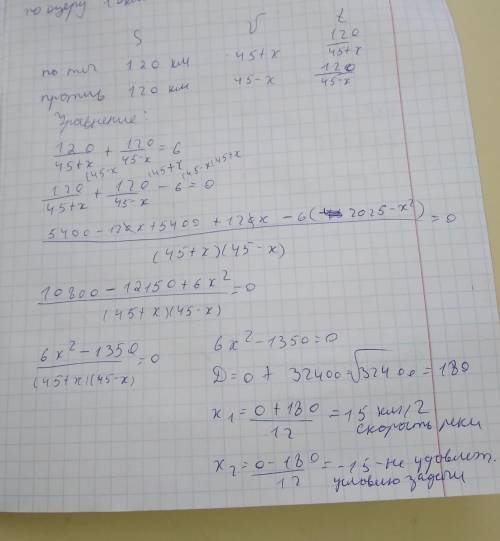 по озеру
S V t
по теч 120 км 45+x 120/(45+x)
против 120 км 45-x 120/(45-x)
Уравнение:
120/(45+x) + 120/(45-x) = 6
120/(45+x) (45-x + 120/(45-x) (45+x - 6 (45-x)(45+x = 0
(5400 - 120x + 5400 + 120x - 6(2025-x²))/((45+x)(45-x)) = 0
(10800 - 12150 + 6x²)/((45+x)(45-x)) = 0
(6x² - 1350)/((45+x)(45-x)) = 0
6x² - 1350 = 0
D = 0 + 32400 = √32400 = 180
x₁ = (0 + 180)/12 = 15 км/2
скорость реки
x₂ = (0 - 180)/12 = -15 - не удовлет.
условию задачи